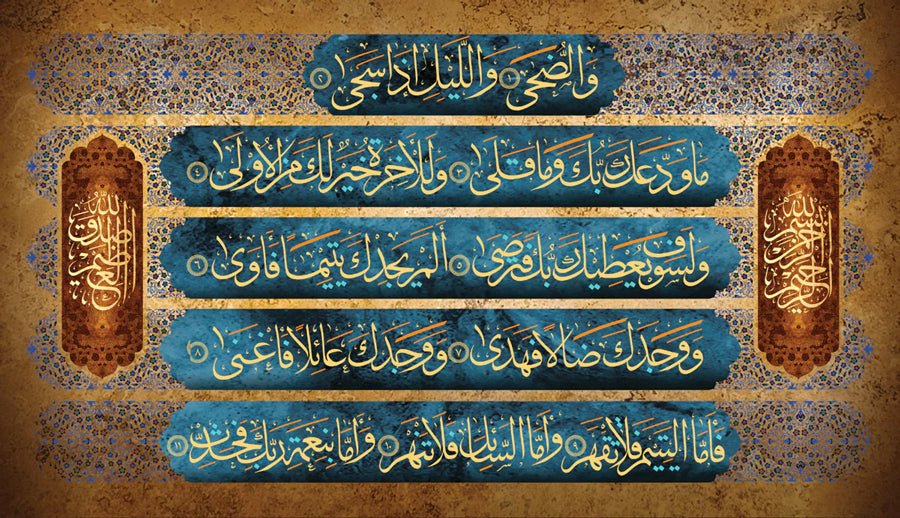 بسم الله الرحمن الرحيم
والضحى ١ والليل إذا سجى ٢
ما ودعك ربك وما قلى ٣ وللآخرة خير لك من الأولى ٤
ولسوف يعطيك ربك فترضى ٥ ألم يجدك يتيما فآوى ٦
ووجدك ضالا فهدى ٧ ووجدك عائلا فأغنى ٨
فأما اليتيم فلا تقهر ٩ وأما السائل فلا تنهر ١٠ وأما بنعمة ربك فحدث ١١
صدق الله العظيم